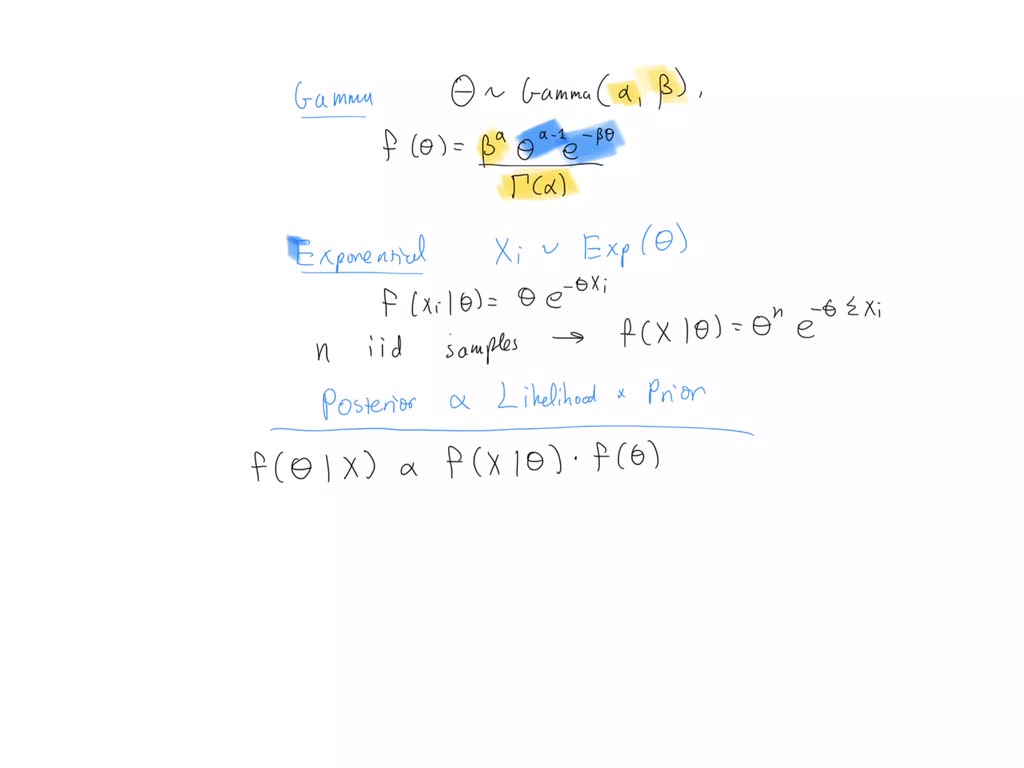 Gamma θ ~ Gamma(α, β),
f(θ) = β^α θ^(α-1) e^(-βθ) / Γ(α)
Exponential Xi ~ Exp(θ)
f(xi|θ) = θ e^(-θxi)
n iid samples → f(X|θ) = θ^n e^(-θ Σxi)
Posterior α Likelihood × Prior
f(θ|X) α f(X|θ) · f(θ)